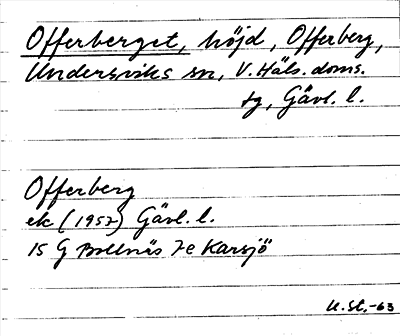 Offerberget, höjd, Offerberg,
Undersviks sn, V. Häls. doms.
tg, Gävl. l.
Offerberg
ek (1957) Gävl. l.
15 G Bollnäs 7e Karsjö
U. St. -63